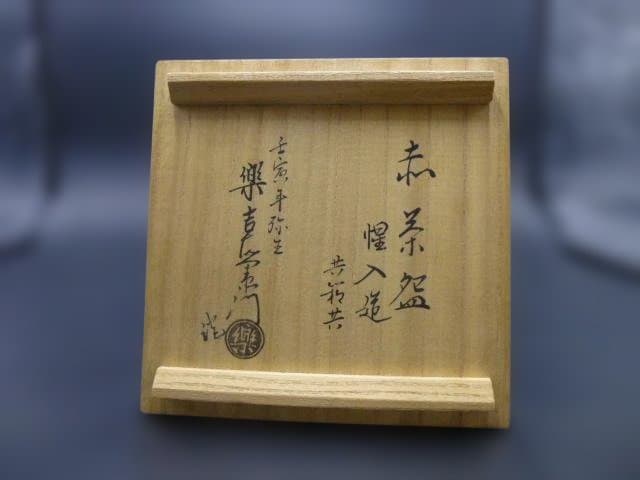 赤茶盌
惺入造
共箱共
壬寅年弥生
樂吉左衛門
識
樂